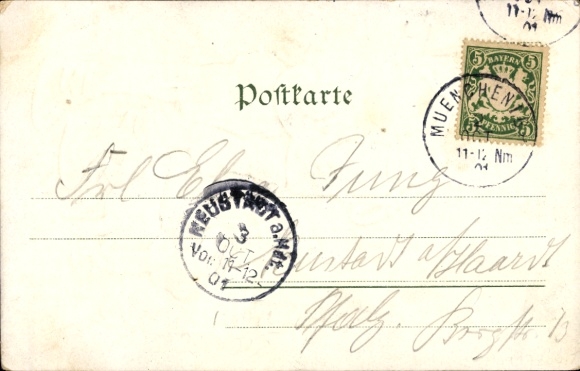 11-12 Nm
01
5 BAYERN 5
5 PFENNIG 5
Postkarte
MUENCHEN
11-12 Nm
01
Frl Elsa Jung
NEUSTADT a. Hdt.
3
OCT
Vor. 11-12
01
Neustadt a/Haardt
Pfalz.